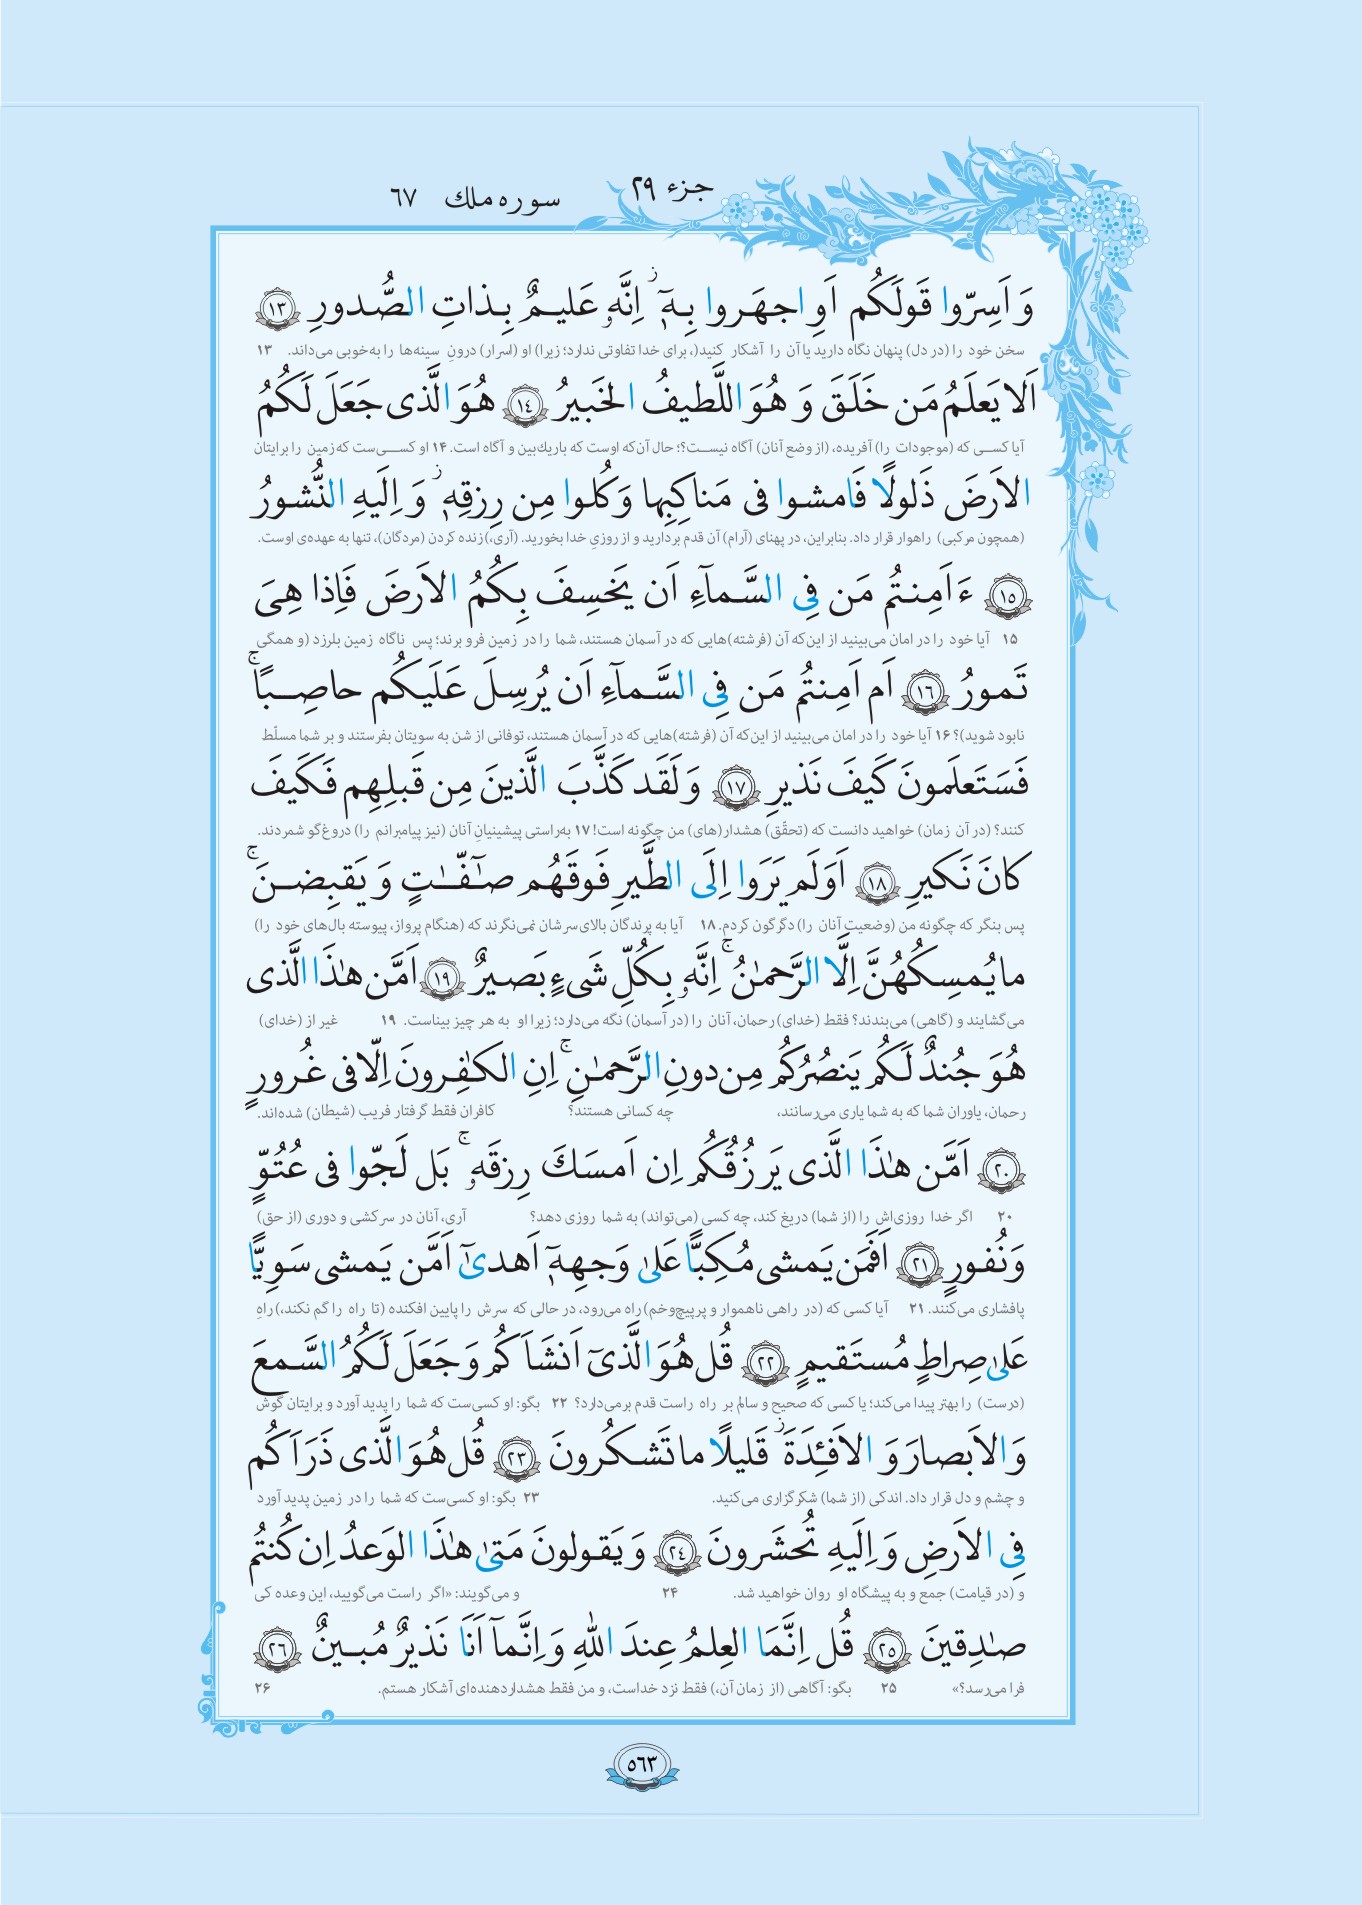 جزء ۲۹
سوره ملك ٦٧
وَ اَسِرّوا قَولَكُم اَوِ اجهَروا بِهٖٓ ۖ اِنَّهٗ عَليمٌ بِذاتِ الصُّدورِ ١٣
سخن خود را (در دل) پنهان نگاه دارید یا آن را آشکار کنید(، برای خدا تفاوتی ندارد؛ زیرا) او (اسرار) درونِ سینه‌ها را به‌خوبی می‌داند. ۱۳
اَلا يَعلَمُ مَن خَلَقَ وَ هُوَ اللَّطيفُ الخَبيرُ ١٤ هُوَ الَّذى جَعَلَ لَكُمُ
آیا کسی که (موجودات را) آفریده، (از وضع آنان) آگاه نیست؟! حال آن‌که اوست که باریك‌بین و آگاه است. ۱۴ او کسی‌ست که زمین را برایتان
الاَرضَ ذَلولًا فَامشوا فى مَناكِبِها وَ كُلوا مِن رِزقِهٖ ۖ وَ اِلَيهِ النُّشورُ
(همچون مرکبی) راهوار قرار داد. بنابراین، در پهنای (آرام) آن قدم بردارید و از روزیِ خدا بخورید. (آری،) زنده کردن (مردگان)، تنها به عهده‌ی اوست.
١٥ ءَاَمِنتُم مَن فِى السَّمآءِ اَن يَخسِفَ بِكُمُ الاَرضَ فَاِذا هِىَ
۱۵ آیا خود را در امان می‌بینید از این‌که آن (فرشته)هایی که در آسمان هستند، شما را در زمین فرو برند؛ پس ناگاه زمین بلرزد (و همگی
تَمورُ ١٦ اَم اَمِنتُم مَن فِى السَّمآءِ اَن يُرسِلَ عَلَيكُم حاصِبًا ۚ
نابود شوید)؟ ۱۶ آیا خود را در امان می‌بینید از این‌که آن (فرشته)هایی که در آسمان هستند، توفانی از شن به سویتان بفرستند و بر شما مسلّط
فَسَتَعلَمونَ كَيفَ نَذيرِ ١٧ وَ لَقَد كَذَّبَ الَّذينَ مِن قَبلِهِم فَكَيفَ
کنند؟ (در آن زمان) خواهید دانست که (تحقّق) هشدار(های) من چگونه است! ۱۷ به‌راستی پیشینیانِ آنان (نیز پیامبرانم را) دروغ‌گو شمردند.
كانَ نَكيرِ ١٨ اَوَلَم يَرَوا اِلَى الطَّيرِ فَوقَهُم صآفّٰتٍ وَ يَقبِضنَ ۚ
پس بنگر که چگونه من (وضعیت آنان را) دگرگون کردم. ۱۸ آیا به پرندگان بالای سرشان نمی‌نگرند که (هنگام پرواز، پیوسته بال‌های خود را)
ما يُمسِكُهُنَّ اِلَّا الرَّحمٰنُ ۚ اِنَّهٗ بِكُلِّ شَىءٍ بَصيرٌ ١٩ اَمَّن هٰذَا الَّذى
می‌گشایند و (گاهی) می‌بندند؟ فقط (خدای) رحمان، آنان را (در آسمان) نگه می‌دارد؛ زیرا او به هر چیز بیناست. ۱۹ غیر از (خدای)
هُوَ جُندٌ لَكُم يَنصُرُكُم مِن دونِ الرَّحمٰنِ ۚ اِنِ الكٰفِرونَ اِلّا فى غُرورٍ
رحمان، یاوران شما که به شما یاری می‌رسانند، چه کسانی هستند؟ کافران فقط گرفتار فریب (شیطان) شده‌اند.
٢٠ اَمَّن هٰذَا الَّذى يَرزُقُكُم اِن اَمسَكَ رِزقَهٗ ۚ بَل لَجّوا فى عُتُوٍّ
۲۰ اگر خدا روزی‌اش را (از شما) دریغ کند، چه کسی (می‌تواند) به شما روزی دهد؟ آری، آنان در سرکشی و دوری (از حق)
وَ نُفورٍ ٢١ اَفَمَن يَمشى مُكِبًّا عَلىٰ وَجهِهٖٓ اَهدىٰٓ اَمَّن يَمشى سَوِيًّا
پافشاری می‌کنند. ۲۱ آیا کسی که (در راهی ناهموار و پرپیچ‌وخم) راه می‌رود، در حالی که سرش را پایین افکنده (تا راه را گم نکند،) راهِ
عَلىٰ صِراطٍ مُستَقيمٍ ٢٢ قُل هُوَ الَّذىٓ اَنشَاَكُم وَ جَعَلَ لَكُمُ السَّمعَ
(درست) را بهتر پیدا می‌کند؛ یا کسی که صحیح و سالم بر راه راست قدم برمی‌دارد؟ ۲۲ بگو: او کسی‌ست که شما را پدید آورد و برایتان گوش
وَ الاَبصارَ وَ الاَفئِدَةَ ۖ قَليلًا ما تَشكُرونَ ٢٣ قُل هُوَ الَّذى ذَرَاَكُم
و چشم و دل قرار داد. اندکی (از شما) شکرگزاری می‌کنید. ۲۳ بگو: او کسی‌ست که شما را در زمین پدید آورد
فِى الاَرضِ وَ اِلَيهِ تُحشَرونَ ٢٤ وَ يَقولونَ مَتىٰ هٰذَا الوَعدُ اِن كُنتُم
و (در قیامت) جمع و به پیشگاه او روان خواهید شد. ۲۴ و می‌گویند: «اگر راست می‌گویید، این وعده کی
صٰدِقينَ ٢٥ قُل اِنَّمَا العِلمُ عِندَ اللهِ وَ اِنَّمآ اَنَا نَذيرٌ مُبينٌ ٢٦
فرا می‌رسد؟» ۲۵ بگو: آگاهی (از زمان آن،) فقط نزد خداست، و من فقط هشداردهنده‌ای آشکار هستم. ۲۶
٥٦٣